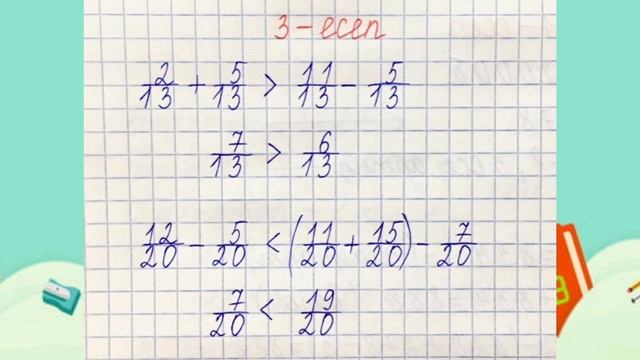 3-есеп
2/13 + 5/13 > 11/13 - 5/13
7/13 > 6/13
12/20 - 5/20 < (11/20 + 15/20) - 7/20
7/20 < 19/20